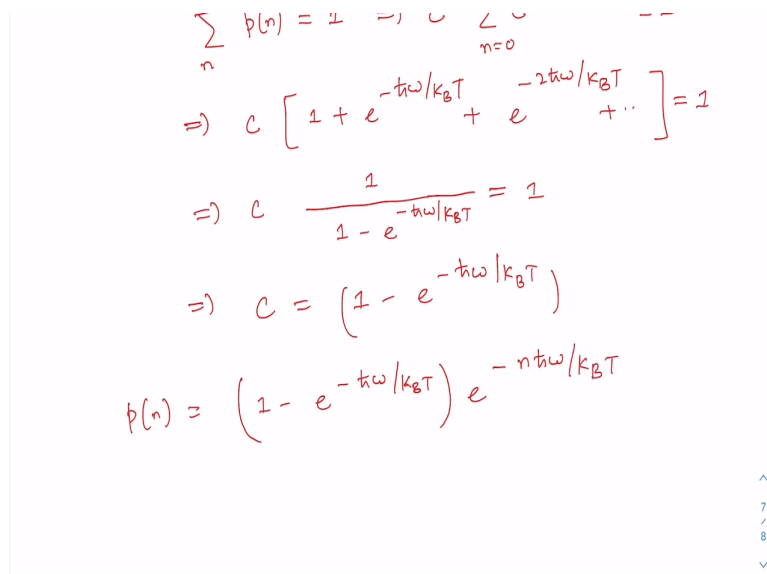 ∑_n p(n) = 1 => C ∑_{n=0}
=> C [ 1 + e^{-ħω/k_BT} + e^{-2ħω/k_BT} + ·· ] = 1
=> C 1/(1 - e^{-ħω/k_BT}) = 1
=> C = (1 - e^{-ħω/k_BT})
p(n) = (1 - e^{-ħω/k_BT}) e^{-nħω/k_BT}
7
/
8